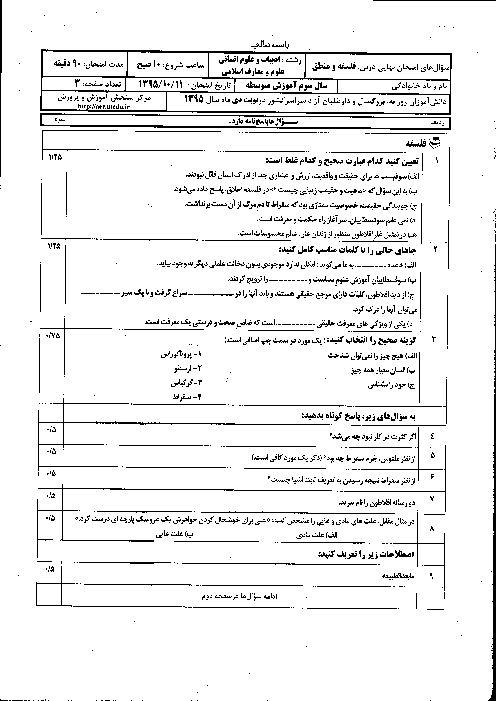 باسمه تعالی
سؤال‌های امتحان نهایی درس: فلسفه و منطق
رشته: ادبیات و علوم انسانی علوم و معارف اسلامی
ساعت شروع: ۱۰ صبح
مدت امتحان: ۹۰ دقیقه
نام و نام خانوادگی
سال سوم آموزش متوسطه
تاریخ امتحان: ۱۳۹۵/۱۰/۱۱
تعداد صفحه: ۳
دانش‌آموزان روزانه، بزرگسال و داوطلبان آزاد سراسر کشور در نوبت دی ماه سال ۱۳۹۵
مرکز سنجش آموزش و پرورش
http://aee.medu.ir
ردیف
سؤال‌ها (پاسخ‌نامه دارد)
نمره
فلسفه
۱ تعیین کنید کدام عبارت صحیح و کدام غلط است: ۱/۲۵
الف) سوفیست‌ها برای حقیقت و واقعیت، ارزش و اعتباری جدا از ادراک انسان قائل نبودند.
ب) به این سؤال که «ماهیت و حقیقت زیبایی چیست؟» در فلسفه اخلاق، پاسخ داده می‌شود.
ج) جویندگی حقیقت، خصوصیت ممتازی بود که سقراط تا دم مرگ از آن دست برنداشت.
د) نفی علم سوفسطاییان، سرآغاز راه حکمت و معرفت است.
هـ) در تمثیل غار افلاطون، منظور از زندان غار، عالم محسوسات است.
۲ جاهای خالی را با کلمات مناسب کامل کنید: ۱/۲۵
الف) قاعده ............ به ما می‌گوید: امکان ندارد موجودی بدون دخالت عاملی دیگر به وجود بیاید.
ب) سوفسطاییان آموزش علوم سیاست و ............ را ترویج کردند.
ج) از دید افلاطون، کلیات دارای مرجع حقیقی هستند و باید آنها را در ............ سراغ گرفت و با یک سیر ............
می‌توان آنها را درک کرد.
د) یکی از ویژگی های معرفت حقیقی ............ است که ضامن صحت و درستی یک معرفت است.
۳ گزینه صحیح را انتخاب کنید: (یک مورد در سمت چپ اضافی است) ۰/۷۵
الف) هیچ چیز را نمی‌توان شناخت ۱- پروتاگوراس
ب) انسان معیار همه چیز ۲- ارسطو
ج) خود را بشناس ۳- گرگیاس
۴- سقراط
به سؤال‌های زیر، پاسخ کوتاه بدهید:
۴ اگر کثرت در کار نبود چه می‌شد؟ ۰/۵
۵ از نظر ملتوس، جرم سقراط چه بود؟ (ذکر یک مورد کافی است.) ۰/۵
۶ از نظر سقراط نتیجه رسیدن به تعریف ثابت اشیا چیست؟ ۰/۵
۷ دو رساله افلاطون را نام ببرید. ۰/۵
۸ در مثال مقابل، علت های مادی و غایی را مشخص کنید: «علی برای خوشحال کردن خواهرش یک عروسک پارچه ای درست کرد.» ۰/۵
الف) علت مادی ب) علت غایی
اصطلاحات زیر را تعریف کنید:
۹ مابعدالطبیعه ۰/۵
ادامه سؤال‌ها در صفحه دوم